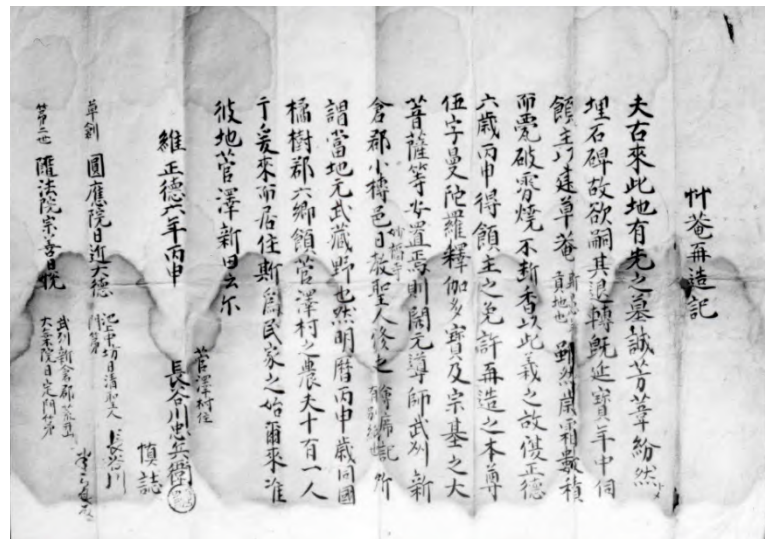 艸菴再造記
夫古來此地有先之墓誠芳葦紛然
埋石碑故欲嗣其退轉既延寶年中伺
領主以建草菴 貢地也 雖然歳霜數積
而雨破雪燒不斷香以此義之故復正徳
六歳丙申得領主之免許再造之本尊
伍字曼陀羅釋伽多寶及宗基之大
菩薩等安置焉則開元導師武刕新
倉郡小榑邑 妙福寺 日教聖人後之 會席記有別紙也 所
謂當地元武藏野也然明暦丙申歳同國
橘樹郡六郷領菅澤村之農夫十百一人
于爰來而居住斯爲民家之始爾來准
彼地菅澤新田云尓
維正徳六年丙申
菅澤村住
長谷川忠兵衛
慎誌
草創 圓應院日近大徳
池上 坊日清聖人 長谷川
第二世 隨法院宗善日悦
武刕新倉郡
大乗院日定門弟